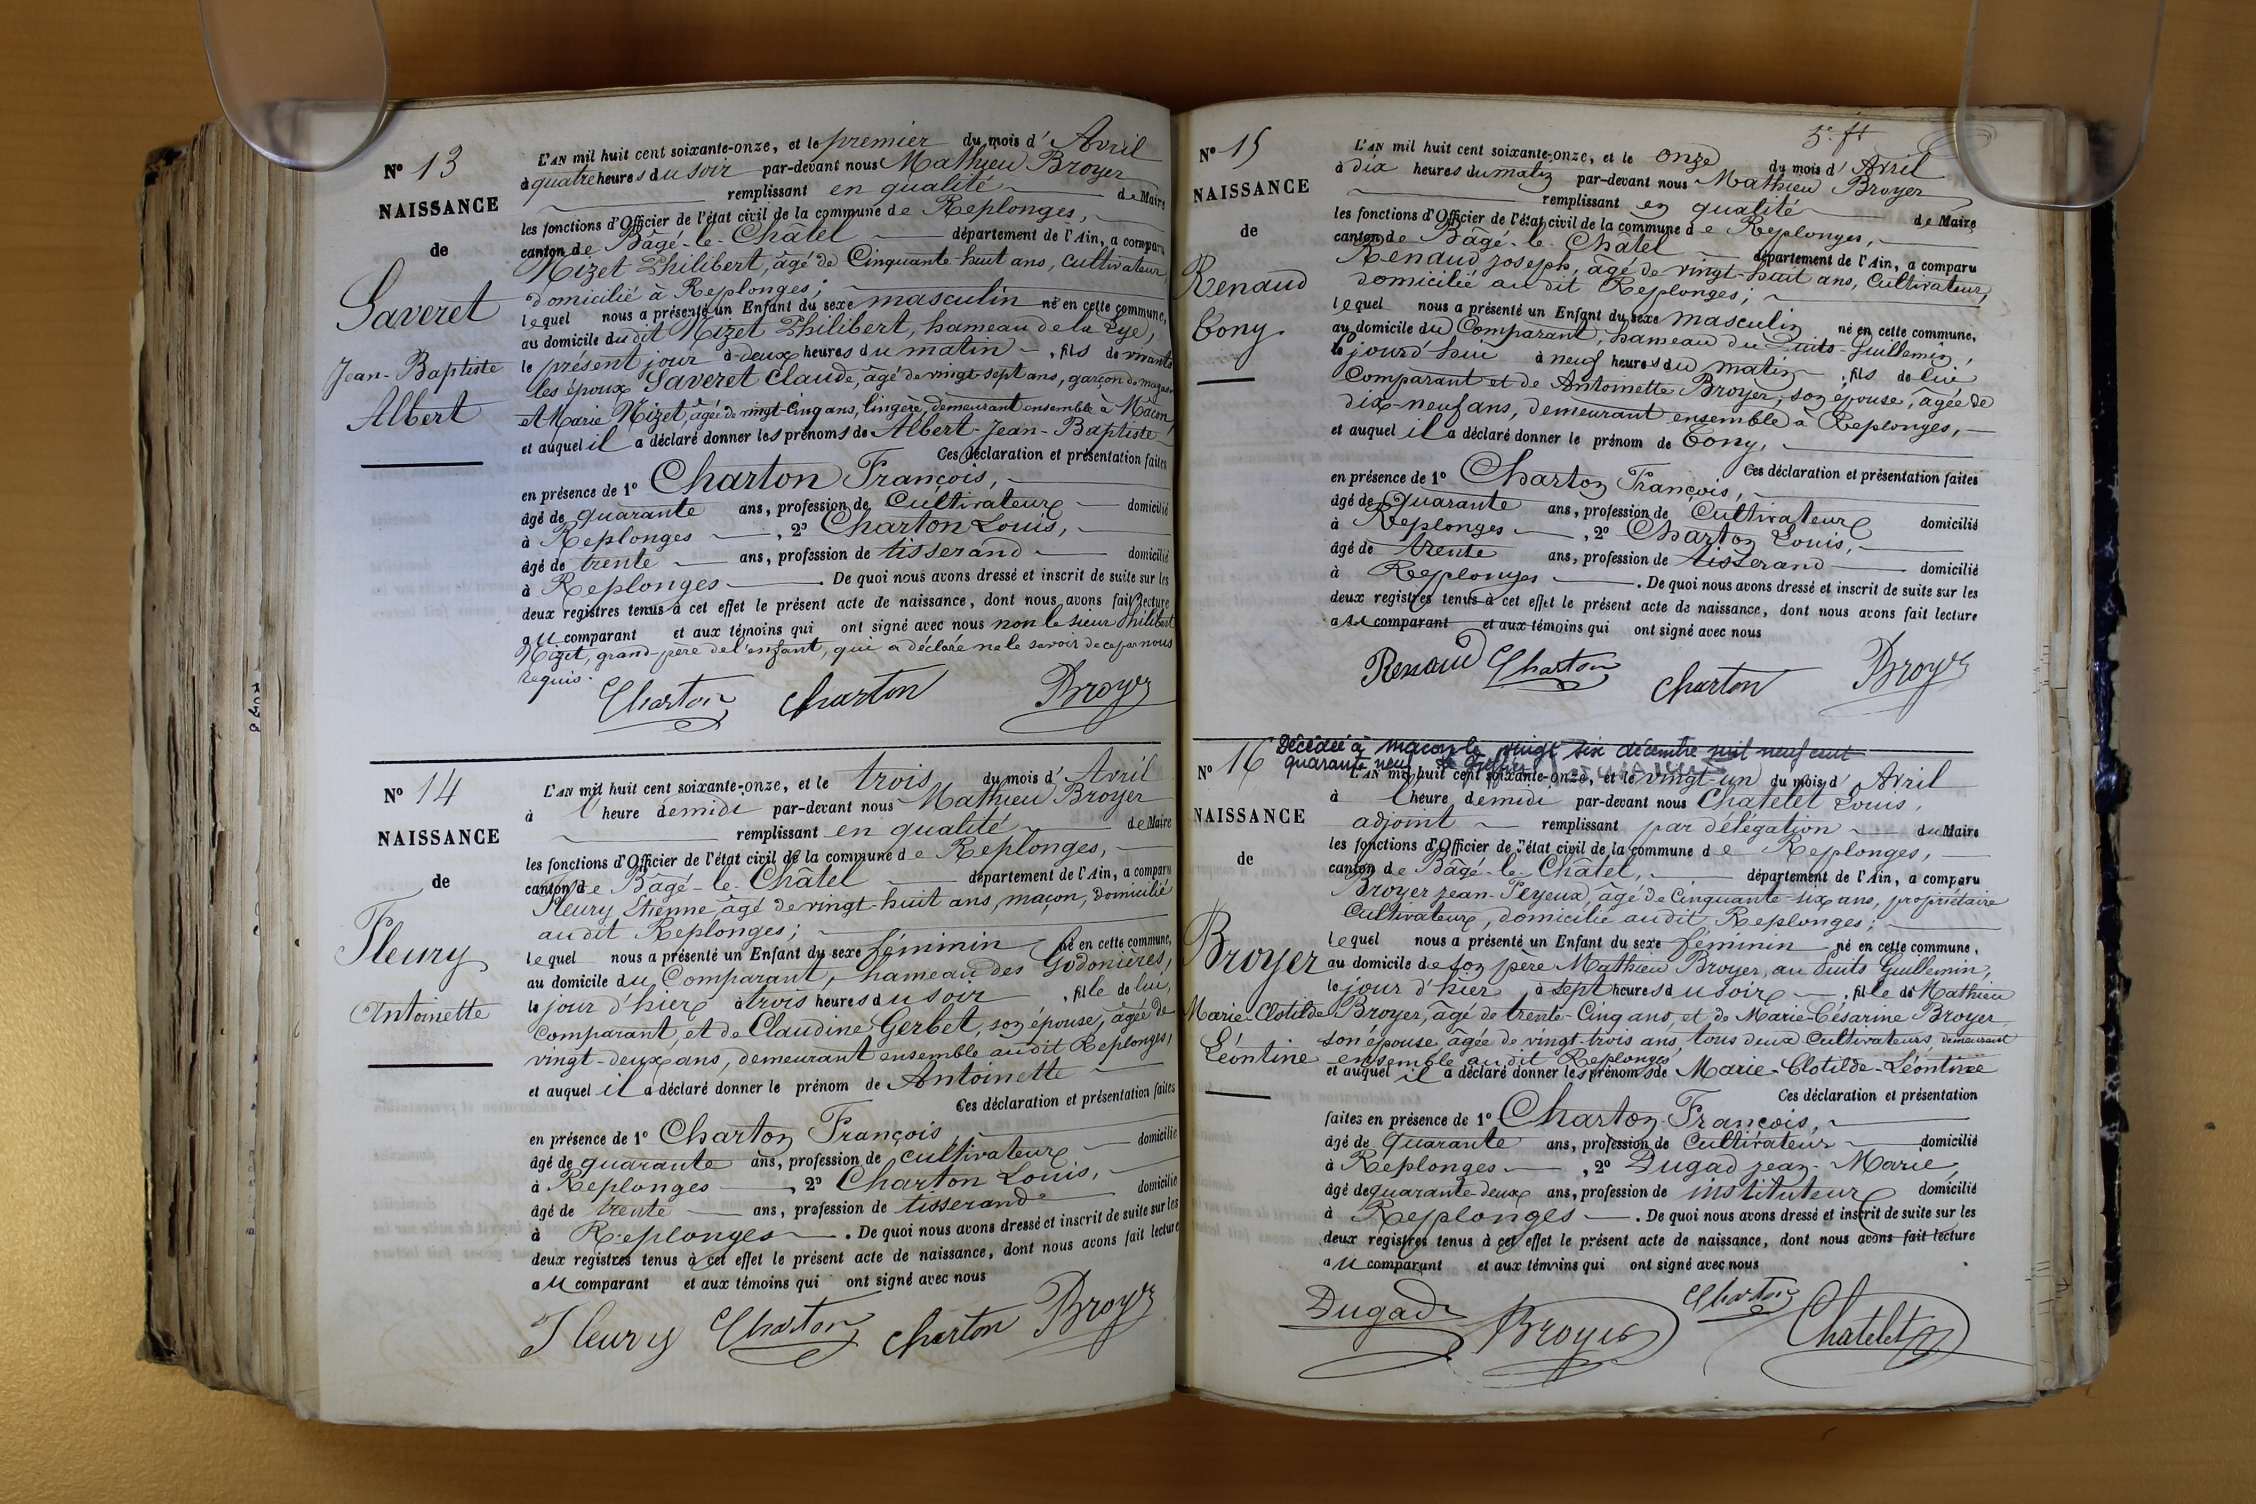 N° 13
NAISSANCE
de
Saveret
Jean-Baptiste
Albert
L'AN mil huit cent soixante-onze, et le premier du mois d'Avril
à quatre heures du soir par-devant nous Mathieu Broyer
remplissant en qualité de Maire
les fonctions d'Officier de l'état civil de la commune de Replonges,
canton de Bâgé-le-Châtel département de l'Ain, a comparu
Nizet Philibert, âgé de Cinquante-huit ans, cultivateur,
domicilié à Replonges;
lequel nous a présenté un Enfant du sexe masculin né en cette commune,
au domicile du dit Nizet Philibert, hameau de la
le présent jour à deux heures du matin, fils de vivants
les époux Saveret Claude, âgé de vingt-sept ans, garçon de magasin
et Marie Nizet, âgée de vingt-cinq ans, lingère, demeurant ensemble à Mâcon,
et auquel il a déclaré donner les prénoms de Albert-Jean-Baptiste
Ces déclaration et présentation faites
en présence de 1° Charton François,
âgé de quarante ans, profession de Cultivateur domicilié
à Replonges, 2° Charton Louis,
âgé de trente ans, profession de tisserand domicilié
à Replonges. De quoi nous avons dressé et inscrit de suite sur les
deux registres tenus à cet effet le présent acte de naissance, dont nous avons fait lecture
au comparant et aux témoins qui ont signé avec nous non le sieur Philibert
Nizet, grand-père de l'enfant, qui a déclaré ne le savoir de ce par nous
requis.
Charton Charton Broyer
N° 14
NAISSANCE
de
Fleury
Antoinette
L'AN mil huit cent soixante-onze, et le trois du mois d'Avril
à l'heure de midi par-devant nous Mathieu Broyer
remplissant en qualité de Maire
les fonctions d'Officier de l'état civil de la commune de Replonges,
canton de Bâgé-le-Châtel département de l'Ain, a comparu
Fleury Etienne, âgé de vingt-huit ans, maçon, domicilié
audit Replonges;
lequel nous a présenté un Enfant du sexe féminin né en cette commune,
au domicile du Comparant, hameau des Godonières,
le jour d'hier à trois heures du soir, fille de lui,
Comparant, et de Claudine Gerbet, son épouse, âgée de
vingt-deux ans, demeurant ensemble audit Replonges,
et auquel il a déclaré donner le prénom de Antoinette
Ces déclaration et présentation faites
en présence de 1° Charton François,
âgé de quarante ans, profession de cultivateur domicilié
à Replonges, 2° Charton Louis,
âgé de trente ans, profession de tisserand domicilié
à Replonges. De quoi nous avons dressé et inscrit de suite sur les
deux registres tenus à cet effet le présent acte de naissance, dont nous avons fait lecture
au comparant et aux témoins qui ont signé avec nous
Fleury Charton Charton Broyer
5e. ft
N° 15
NAISSANCE
de
Renaud
Tony.
L'AN mil huit cent soixante-onze, et le onze du mois d'Avril
à dix heures du matin par-devant nous Mathieu Broyer
remplissant en qualité de Maire
les fonctions d'Officier de l'état civil de la commune de Replonges,
canton de Bâgé-le-Châtel département de l'Ain, a comparu
Renaud Joseph, âgé de vingt-huit ans, Cultivateur,
domicilié audit Replonges;
lequel nous a présenté un Enfant du sexe masculin né en cette commune,
au domicile du Comparant, hameau du Puits-Guillemin,
jourd'hui à neuf heures du matin, fils de lui
Comparant et de Antoinette Broyer, son épouse, âgée de
dix-neuf ans, demeurant ensemble à Replonges,
et auquel il a déclaré donner le prénom de Tony,
Ces déclaration et présentation faites
en présence de 1° Charton François,
âgé de Quarante ans, profession de Cultivateur domicilié
à Replonges, 2° Charton Louis,
âgé de trente ans, profession de tisserand domicilié
à Replonges. De quoi nous avons dressé et inscrit de suite sur les
deux registres tenus à cet effet le présent acte de naissance, dont nous avons fait lecture
au comparant et aux témoins qui ont signé avec nous
Renaud Charton Charton Broyer
Décédée à macon le vingt six décembre mil neuf cent
quarante neuf
N° 16
NAISSANCE
de
Broyer
Marie-Clotilde
Léontine
L'AN mil huit cent soixante-onze, et le vingt-un du mois d'Avril
à l'heure de midi par-devant nous Chatelet Louis,
adjoint remplissant par délégation du Maire
les fonctions d'Officier de l'état civil de la commune de Replonges,
canton de Bâgé-le-Châtel, département de l'Ain, a comparu
Broyer Jean-Peyeux, âgé de Cinquante-six ans, propriétaire
Cultivateur, domicilié audit Replonges;
lequel nous a présenté un Enfant du sexe féminin né en cette commune,
au domicile de son père Mathieu Broyer, au Puits Guillemin,
le jour d'hier à sept heures du soir, fille de Mathieu
Broyer, âgé de trente-Cinq ans, et de Marie-Césarine Broyer
son épouse, âgée de vingt-trois ans, tous deux Cultivateurs, demeurant
ensemble audit Replonges
et auquel il a déclaré donner les prénoms de Marie-Clotilde-Léontine
Ces déclaration et présentation
faites en présence de 1° Charton François,
âgé de Quarante ans, profession de Cultivateur domicilié
à Replonges, 2° Dugad Jean-Marie,
âgé de quarante-deux ans, profession de instituteur domicilié
à Replonges. De quoi nous avons dressé et inscrit de suite sur les
deux registres tenus à cet effet le présent acte de naissance, dont nous avons fait lecture
au comparant et aux témoins qui ont signé avec nous
Dugad Broyer Charton Chatelet